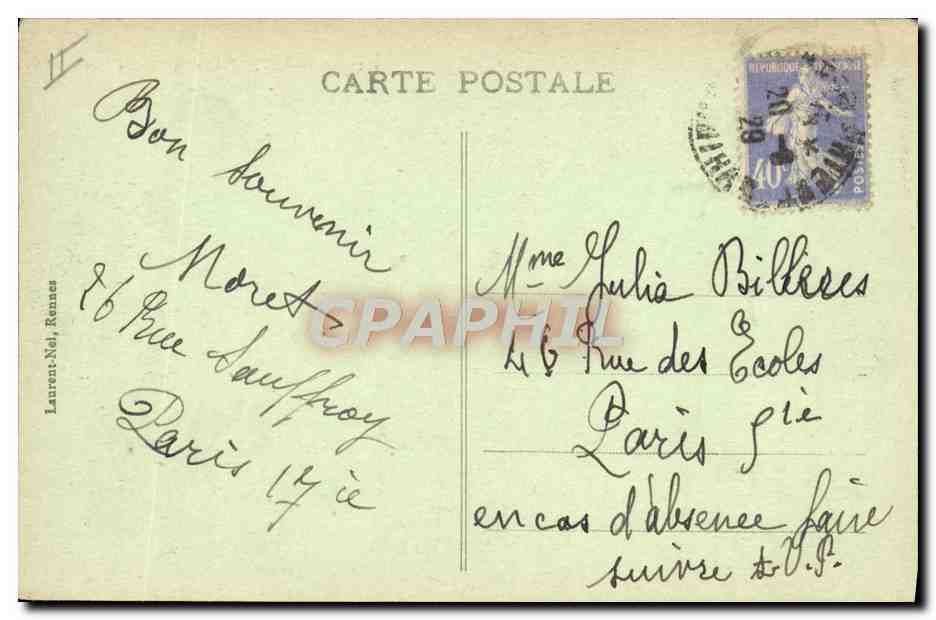 CARTE POSTALE
Bon
souvenir
Moret
26 Rue Sauffroy
Paris 17 ie
Laurent-Nel, Rennes
REPUBLIQUE FRANÇAISE
40c
POSTES
20
29
Mme Julia Billères
46 Rue des Ecoles
Paris 5ie
en cas d'absence faire
suivre s.V.P.
CPAPHIL